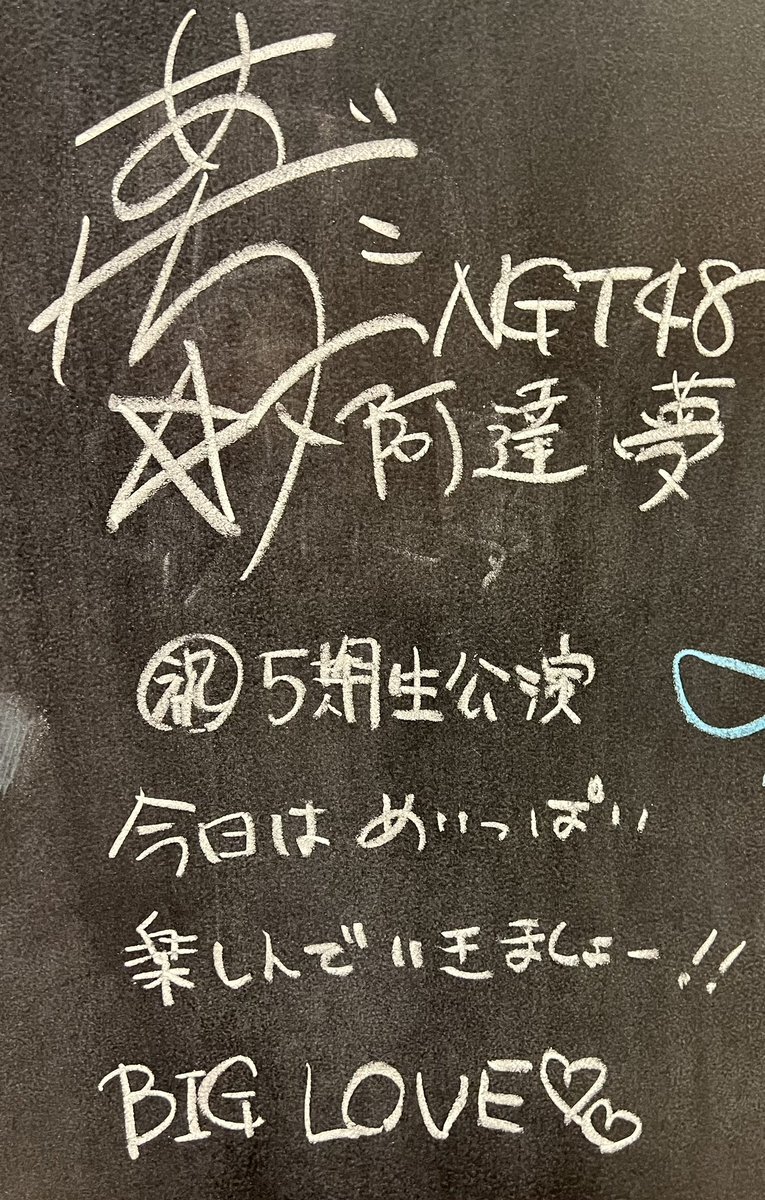 NGT48
阿達 夢
㊗5期生公演
今日は めいっぱい
楽しんでいきましょー!!
BIG LOVE♡♡